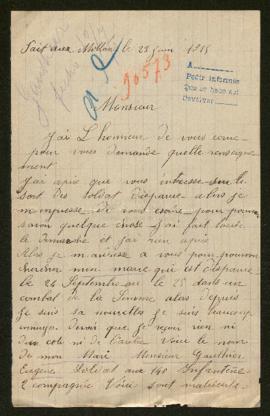 Fait aux Mollans le 23 juin 1915
90573
A
Petit informée
Que se hace así
Devolver
Monsieur
J'ai L honneur de vous
pour vous demande quelle renseigne
ment.
J'ai apris que vous intéresse sur le
sort des soldat disparue alors je
m empresse de vous écrire pour pouvoir
savoir quelque chose J'ai fait toute
le démarche et J'ai rien apris
Alors je m'adresse a vous pour pouvoir
mon marie qui est disparue
le 24 Septembre ou le 25 dans un
combat de la Somme alors depuis
Je suis sa nouvelles je suis beaucoup
ennuyer de voir que je reçoit rien ni
d'un coté ni de l'autre Voici le nom
de mon Mari Monsieur Gauthier
Eugène Soldat au 140 Infanterie
2 compagnie Voici sont matricule